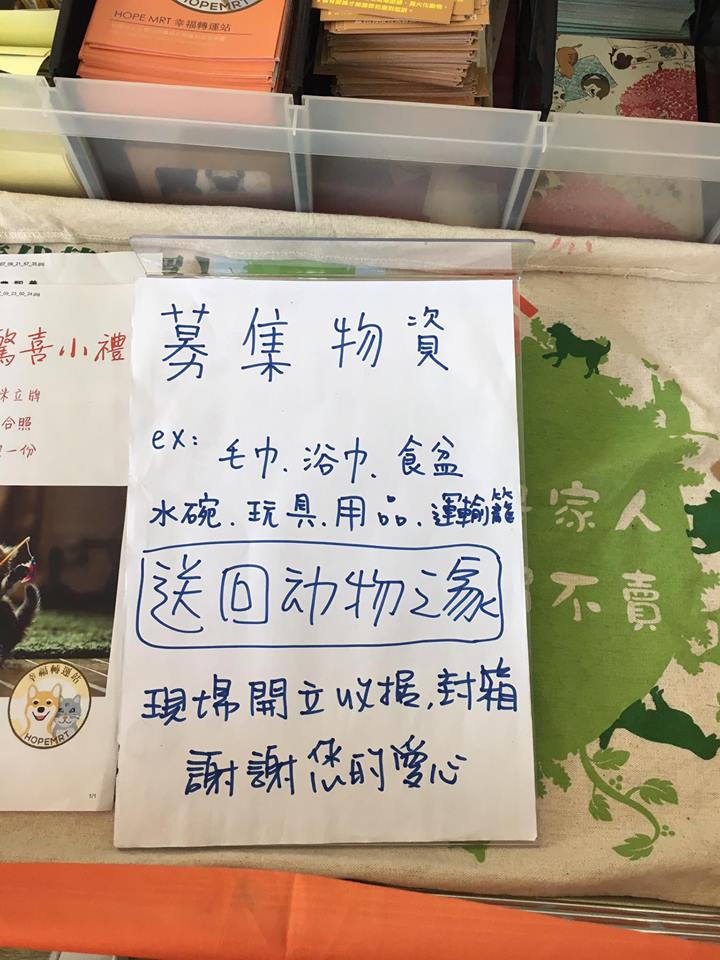 HOPE MRT 幸福轉運站
募集物資
ex: 毛巾、浴巾、食盆
水碗、玩具、用品、運輸籠
送回动物之家
現場開立收据,封箱
謝謝您的愛心
驚喜小禮
立牌
合照
一份
幸福轉運站
HOPEMRT
1/1
家人
不賣